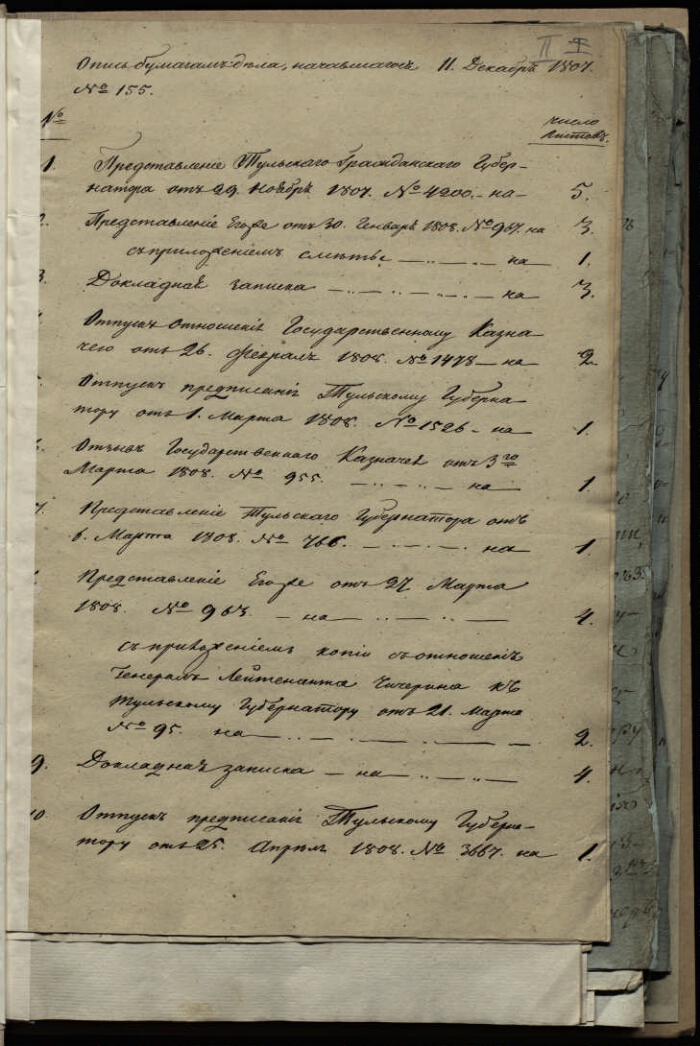 II
Опись бумагамъ дѣла, начавшагося 11. Декабря 1807.
№ 155.
№
число
листовъ.
1. Представленіе Тульскаго Гражданскаго Губер-
натора отъ 29. Ноября 1807. № 4200. на 5.
2. Представленіе Егоже отъ 30. Генваря 1808. № 967. на 3.
съ приложеніемъ смѣты на 1.
3. Докладная записка на 3.
Отпускъ отношенія Государственному Казна-
чею отъ 26. Февраля 1808. № 1478 на 2.
Отпускъ предписанія Тульскому Губерна-
тору отъ 1. Марта 1808. № 1526 на 1.
6. Отзывъ Государственнаго Казначея отъ 3го
Марта 1808. № 955. на 1.
7. Представленіе Тульскаго Губернатора отъ
6. Марта 1808. № 766. на 1.
Представленіе Егоже отъ 27. Марта
1808. № 968. на 4.
съ приложеніемъ копіи съ отношенія
Генералъ Лейтенанта Чичерина къ
Тульскому Губернатору отъ 21. Марта
№ 95. на 2.
9. Докладная записка на 4.
10. Отпускъ предписанія Тульскому Губерна-
тору отъ 25. Апрѣля 1808. № 3667. на 1.